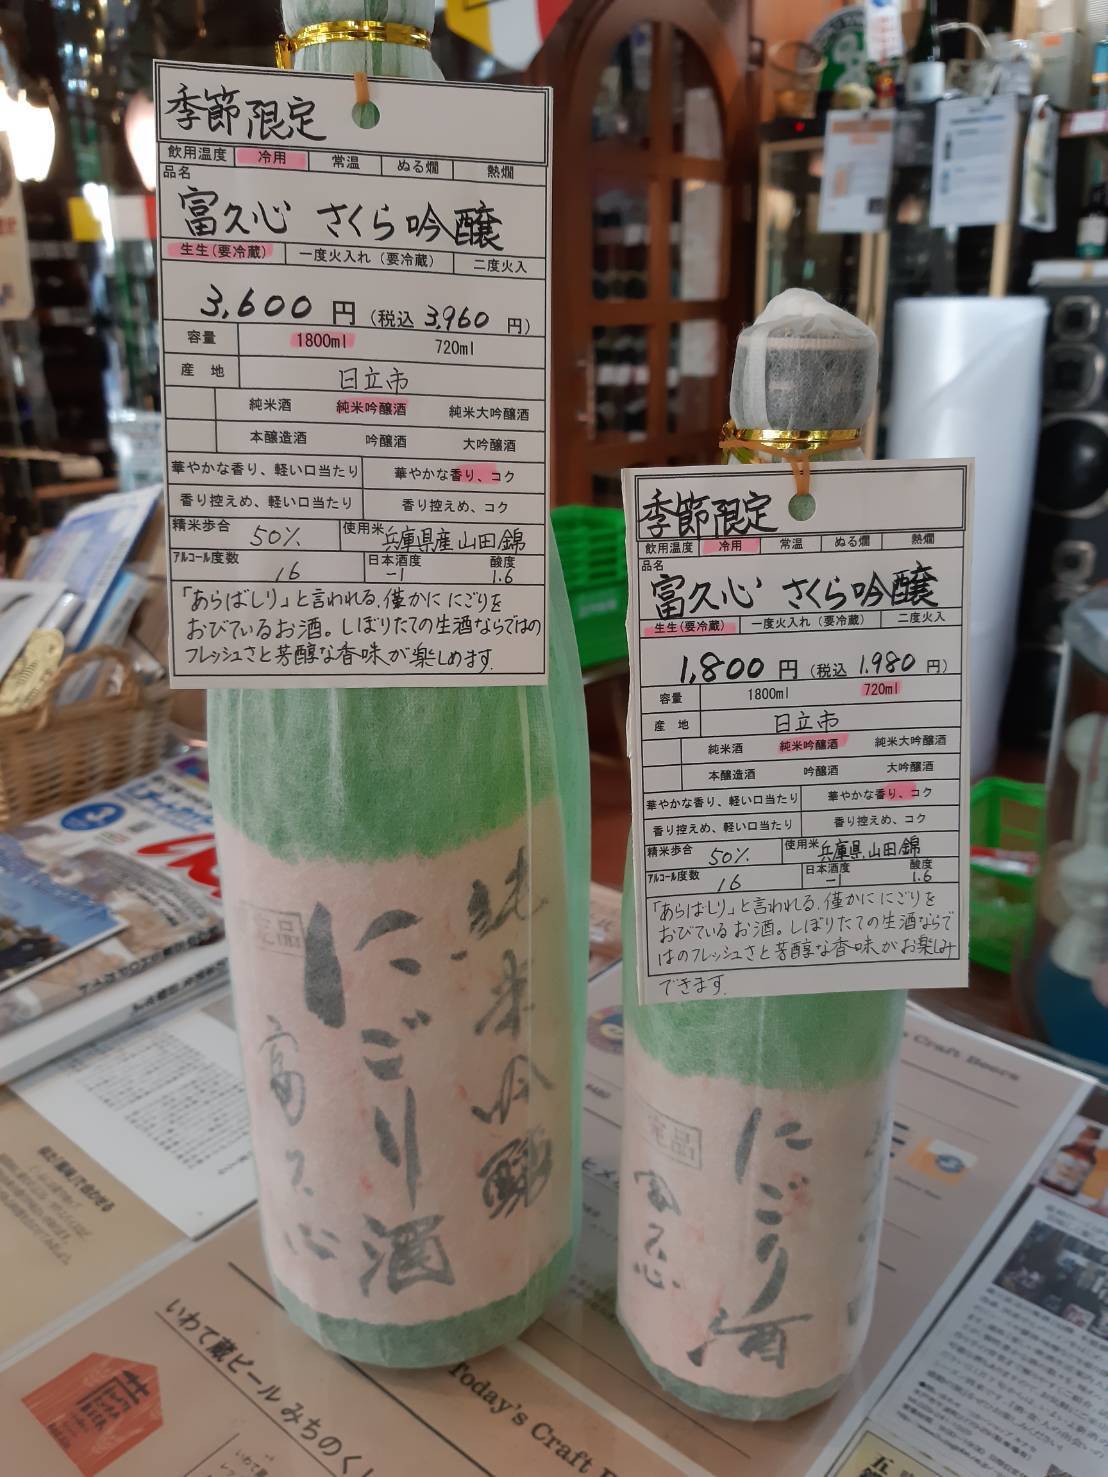 季節限定
飲用温度 冷用 常温 ぬる燗 熱燗
品名
富久心 さくら吟醸
生生(要冷蔵) 一度火入れ(要冷蔵) 二度火入
3,600 円 (税込 3,960 円)
容量 1800ml 720ml
産 地 日立市
純米酒 純米吟醸酒 純米大吟醸酒
本醸造酒 吟醸酒 大吟醸酒
華やかな香り、軽い口当たり 華やかな香り、コク
香り控えめ、軽い口当たり 香り控えめ、コク
精米歩合 50% 使用米 兵庫県産山田錦
アルコール度数 16 日本酒度 -1 酸度 1.6
「あらばしり」と言われる、僅かににごりを
おびているお酒。しぼりたての生酒ならではの
フレッシュさと芳醇な香味が楽しめます.
純米吟醸
にごり酒
富久心
季節限定
飲用温度 冷用 常温 ぬる燗 熱燗
品名
富久心 さくら吟醸
生生(要冷蔵) 一度火入れ(要冷蔵) 二度火入
1,800 円 (税込 1.980 円)
容量 1800ml 720ml
産 地 日立市
純米酒 純米吟醸酒 純米大吟醸酒
本醸造酒 吟醸酒 大吟醸酒
華やかな香り、軽い口当たり 華やかな香り、コク
香り控えめ、軽い口当たり 香り控えめ、コク
精米歩合 50% 使用米 兵庫県.山田錦
アルコール度数 16 日本酒度 -1 酸度 1.6
「あらばしり」と言われる、僅かににごりを
おびているお酒。しぼりたての生酒ならで
はのフレッシュさと芳醇な香味がお楽しみ
できます.
にごり酒
富久心
Craft Beers
いわて蔵ビール みちのく
Today's Craft